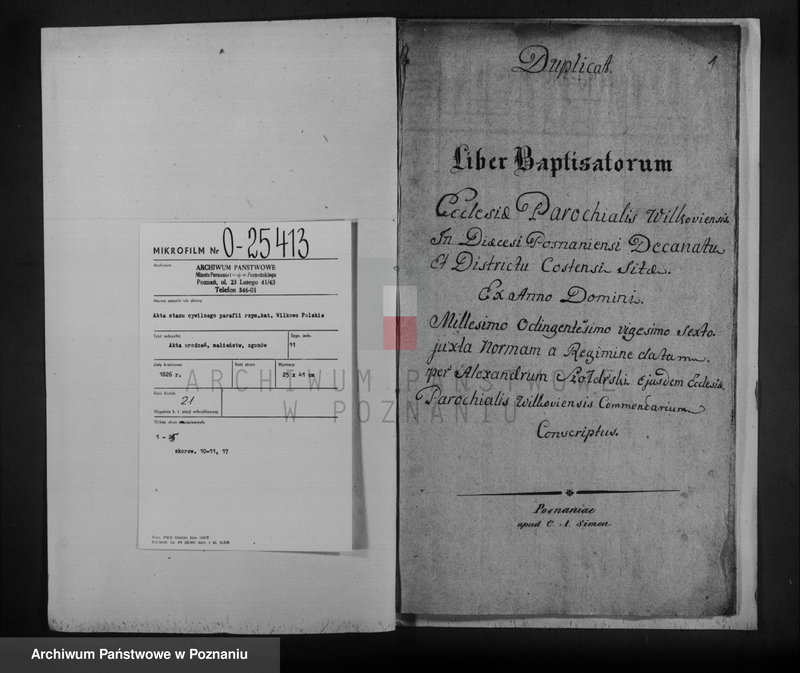 MIKROFILM Nr O-25413
Archiwum:
ARCHIWUM PAŃSTWOWE
Miasta Poznania i
Poznań, ul. 23 Lutego 41/43
Telefon 546-01
Nazwa zespołu lub zbioru:
Akta stanu cywilnego parafii rzym.kat. Wilkowo Polskie
Tytuł jednostki:
Akta urodzeń, małżeństw, zgonów
Sygn. jedn.
11
Daty krańcowe:
1826 r.
Ilość stron:
Wymiary:
25 x 41 cm
Ilość klatek:
21
Wypełnia k. t. stacji mikrofilmowej
Wykaz stron
skorow. 10-11, 17
Duplicat.
1
Liber Baptisatorum
Ecclesiæ Parochialis Wilkoviensis
In Diæcesi Posnaniensi Decanatu
Et Districtu Costensi Sitæ.
Ex Anno Domini.
Millesimo Odingentesimo vigesimo Sexto.
juxta Normam a Regimine datam.
per Alexandrum Szołdrski ejusdem Ecclesiæ
Parochialis Wilkoviensis Commendarium
Conscriptus.
Posnaniae
apud C. A. Simon.
ARCHIWUM PAŃSTWOWE
W POZNANIU
Archiwum Państwowe w Poznaniu